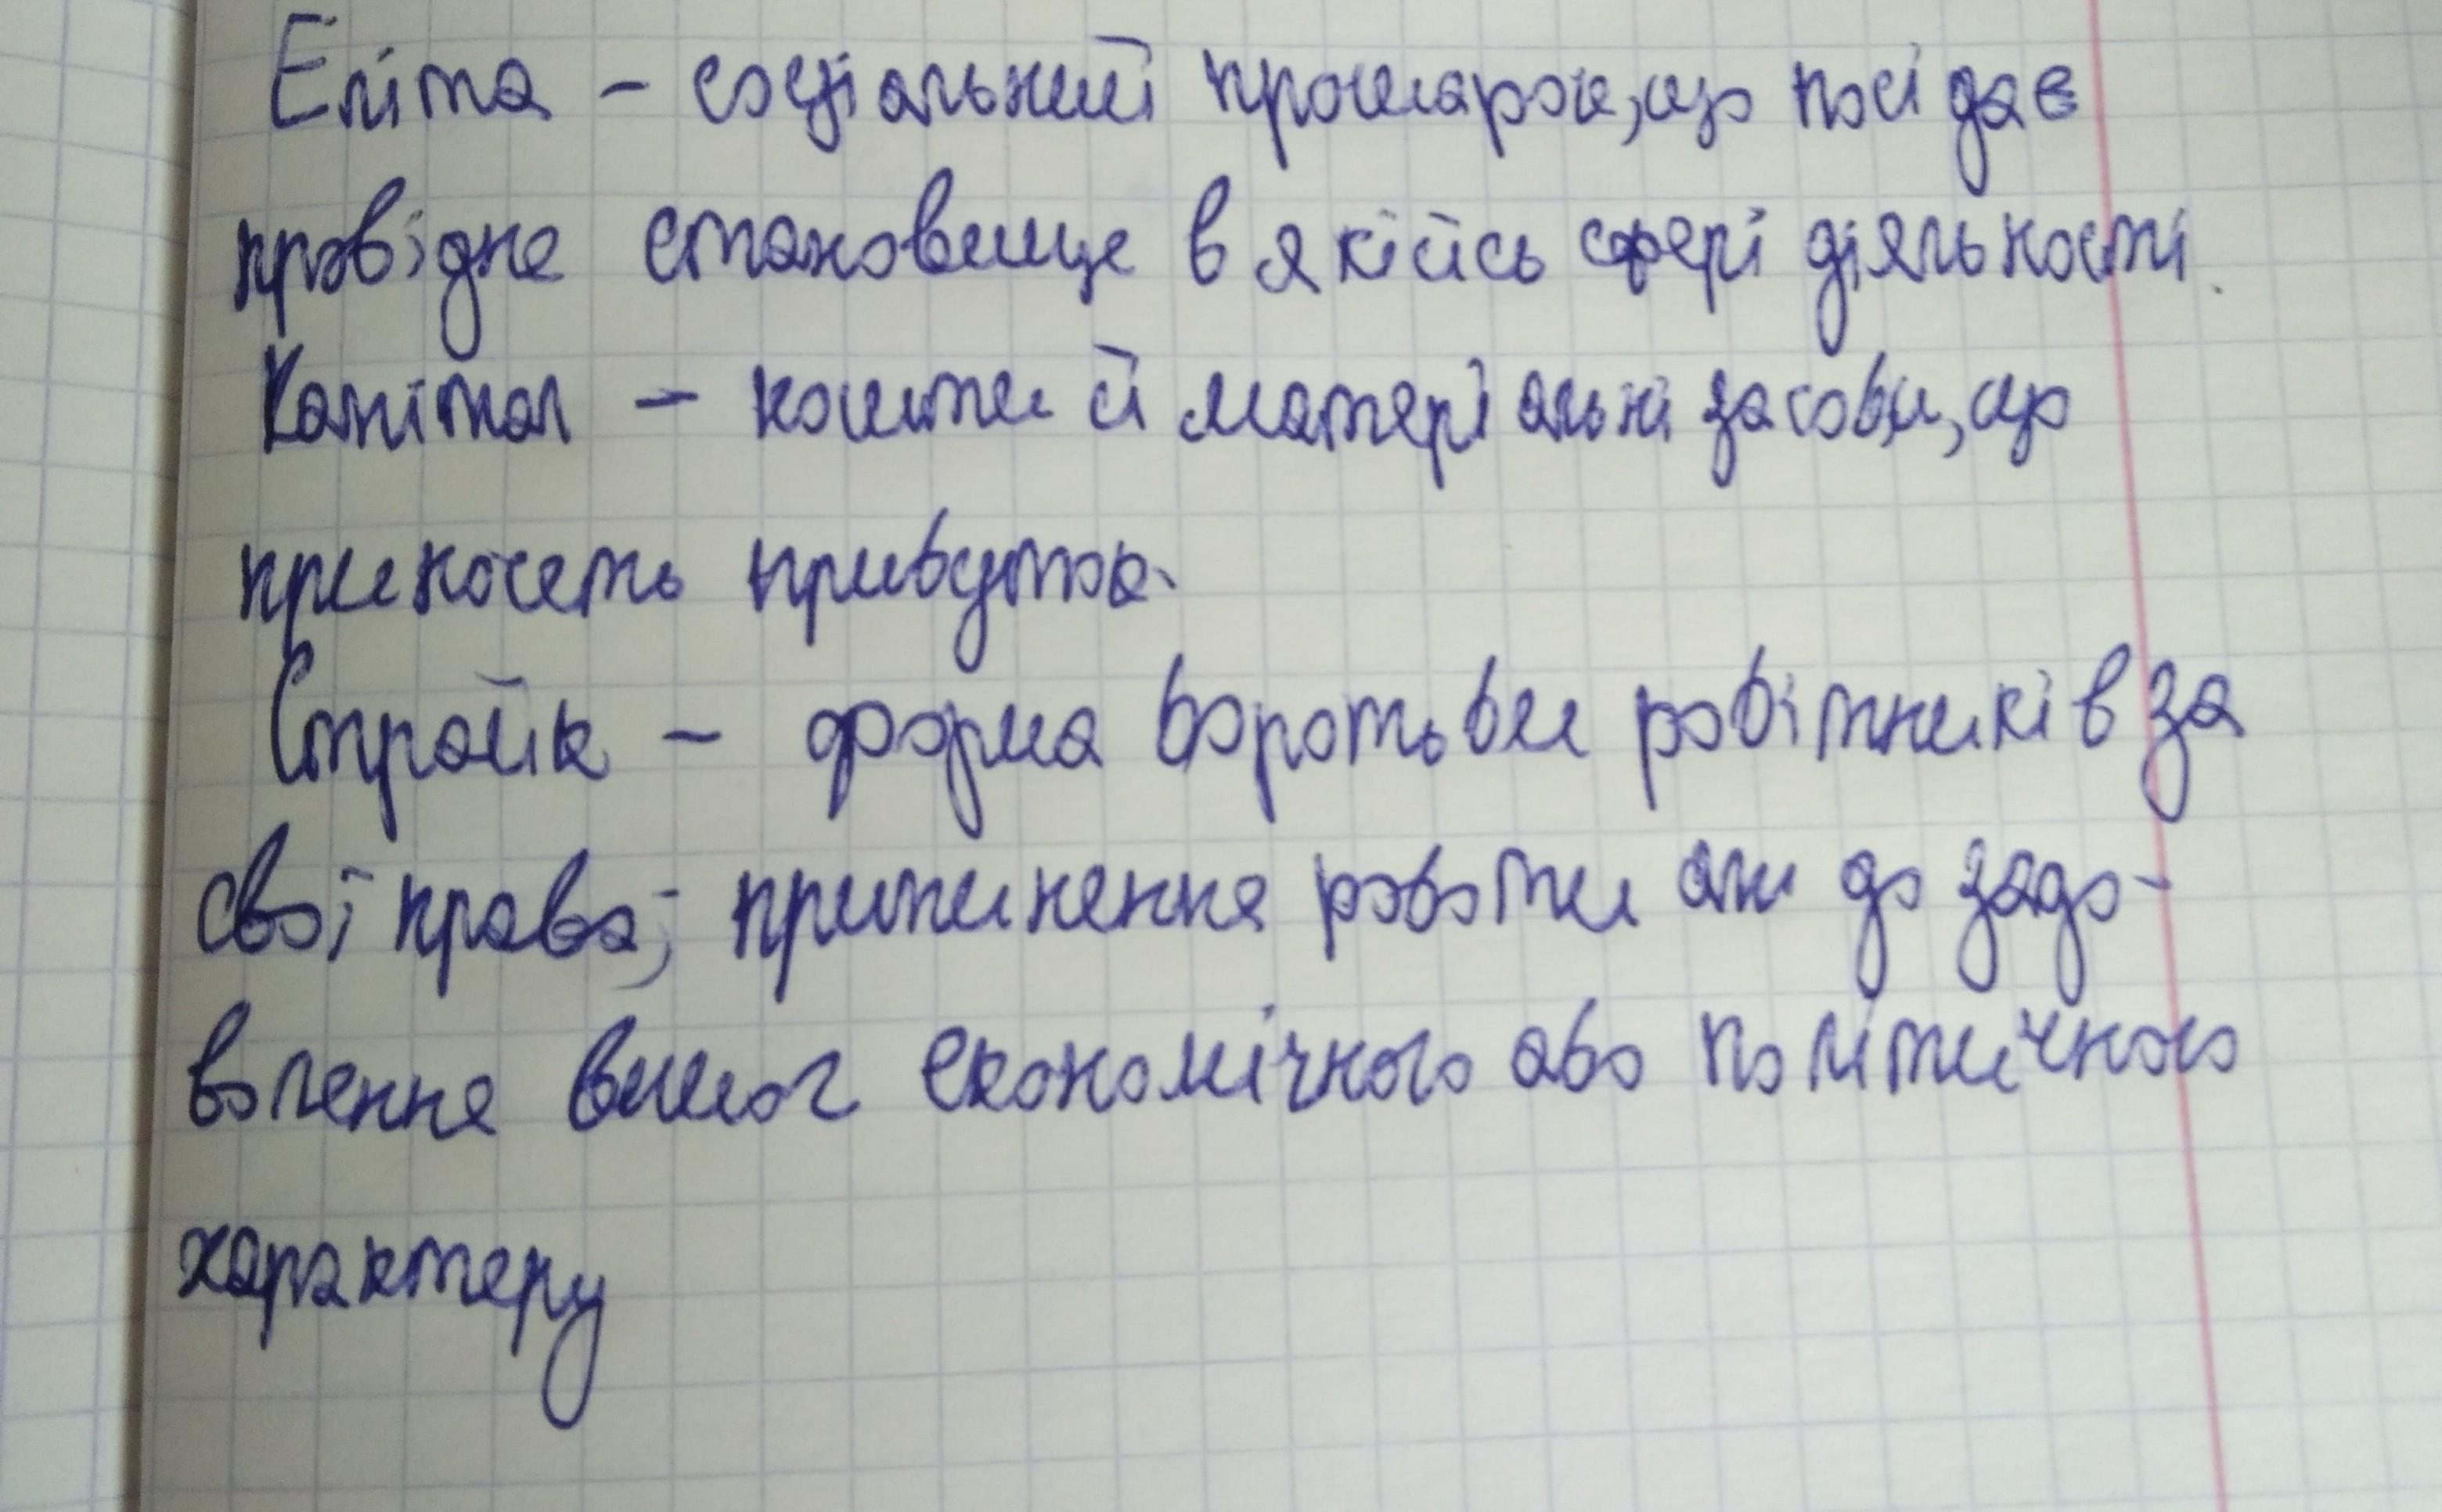 Еліта – соціальний прошарок, що посідає
провідне становище в якійсь сфері діяльності.
Капітал – кошти й матеріальні засоби, що
приносять прибуток.
Страйк – форма боротьби робітників за
свої права; припинення роботи аж до задо-
волення вимог економічного або політичного
характеру